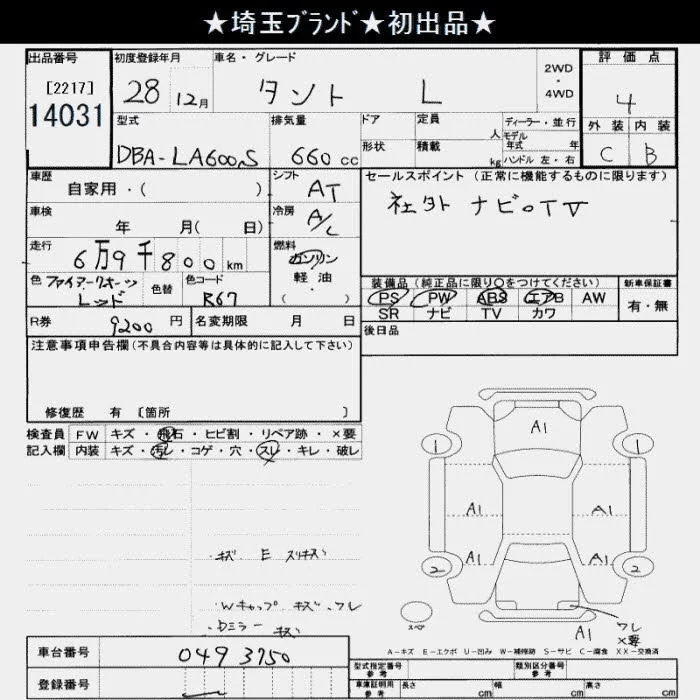 ★埼玉ﾌﾞﾗﾝﾄﾞ★初出品★
出品番号
[2217]
14031
初度登録年月
28 12月
車名・グレード
タント L
2WD
・
4WD
評価点
4
外装 内装
C B
型式
DBA-LA600S
排気量
660 cc
ドア
形状
定員
人
積載
kg
ディーラー・並行
モデル
年式 年
ハンドル 左・右
車歴
自家用・( )
シフト
AT
セールスポイント (正常に機能するものに限ります)
社外 ナビ。TV
車検
年 月( 日)
冷房
A/C
走行
6万9千800 km
燃料
ガソリン
軽油
・
( )
色 ファイアークオーツ
レッド
色替
色コード
R67
装備品 (純正品に限り○をつけてください)
PS PW ABS エアB AW
SR ナビ TV カワ
新車保証書
有・無
R券 9200 円
名変期限 月 日
後日品
注意事項申告欄(不具合内容等は具体的に記入して下さい)
修復歴 有 〔箇所 〕
検査員
記入欄
FW キズ・飛石・ヒビ割・リペア跡・×要
内装 キズ・汚レ・コゲ・穴・スレ・キレ・破レ
キズ E スリキズ
Wキャップ キズ、ワレ
Dミラー キズ
A1
1 1
A1 A1
A1 A1
2 2
スペア
A1
ワレ
×要
A-キズ E-エクボ U-凹み W-補修跡 S-サビ C-腐食 XX-交換済
車台番号 0493750
登録番号
型式指定番号
参考
類別区分番号
参考
車庫証明用
参考
長さ cm 幅 cm 高さ cm